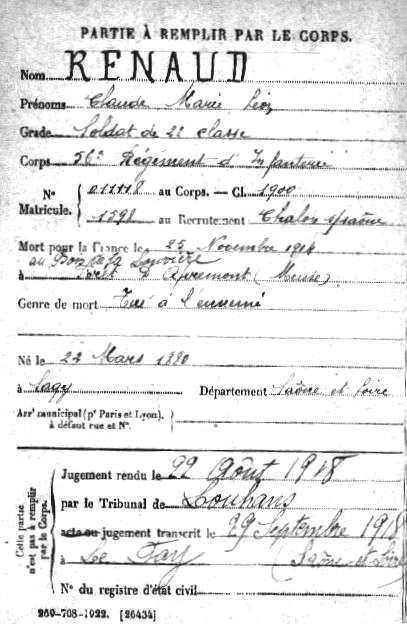 PARTIE À REMPLIR PAR LE CORPS.
Nom RENAUD
Prénoms Claude Marie Léon
Grade Soldat de 2e classe
Corps 56e Régiment d'Infanterie
N° Matricule. { 011118 au Corps. — Cl. 1900
1598 au Recrutement Chalon s/Saône
Mort pour la France le 25 Novembre 1914
au Bois de la Louvière
à Forêt d'Apremont (Meuse)
Genre de mort Tué à l'ennemi
Né le 22 Mars 1880
à Sagy Département Saône et Loire
Arrt municipal (pr Paris et Lyon),
à défaut rue et N°.
Cette partie n'est pas à remplir par le Corps.
Jugement rendu le 22 Août 1918
par le Tribunal de Louhans
acte ou jugement transcrit le 29 Septembre 1918
à Le Fay (Saône et Loire)
N° du registre d'état civil
269-708-1922. [26434]